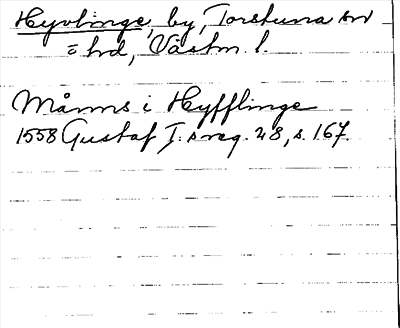 Hyvlinge, by, Torstuna sn
= hd, Västm. l.
Måns i Hyfflinge
1558 Gustaf I:s reg. 28, s. 167.